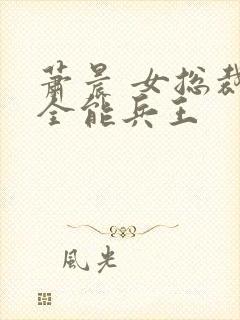 萧晨 女总裁
全能兵王
风光